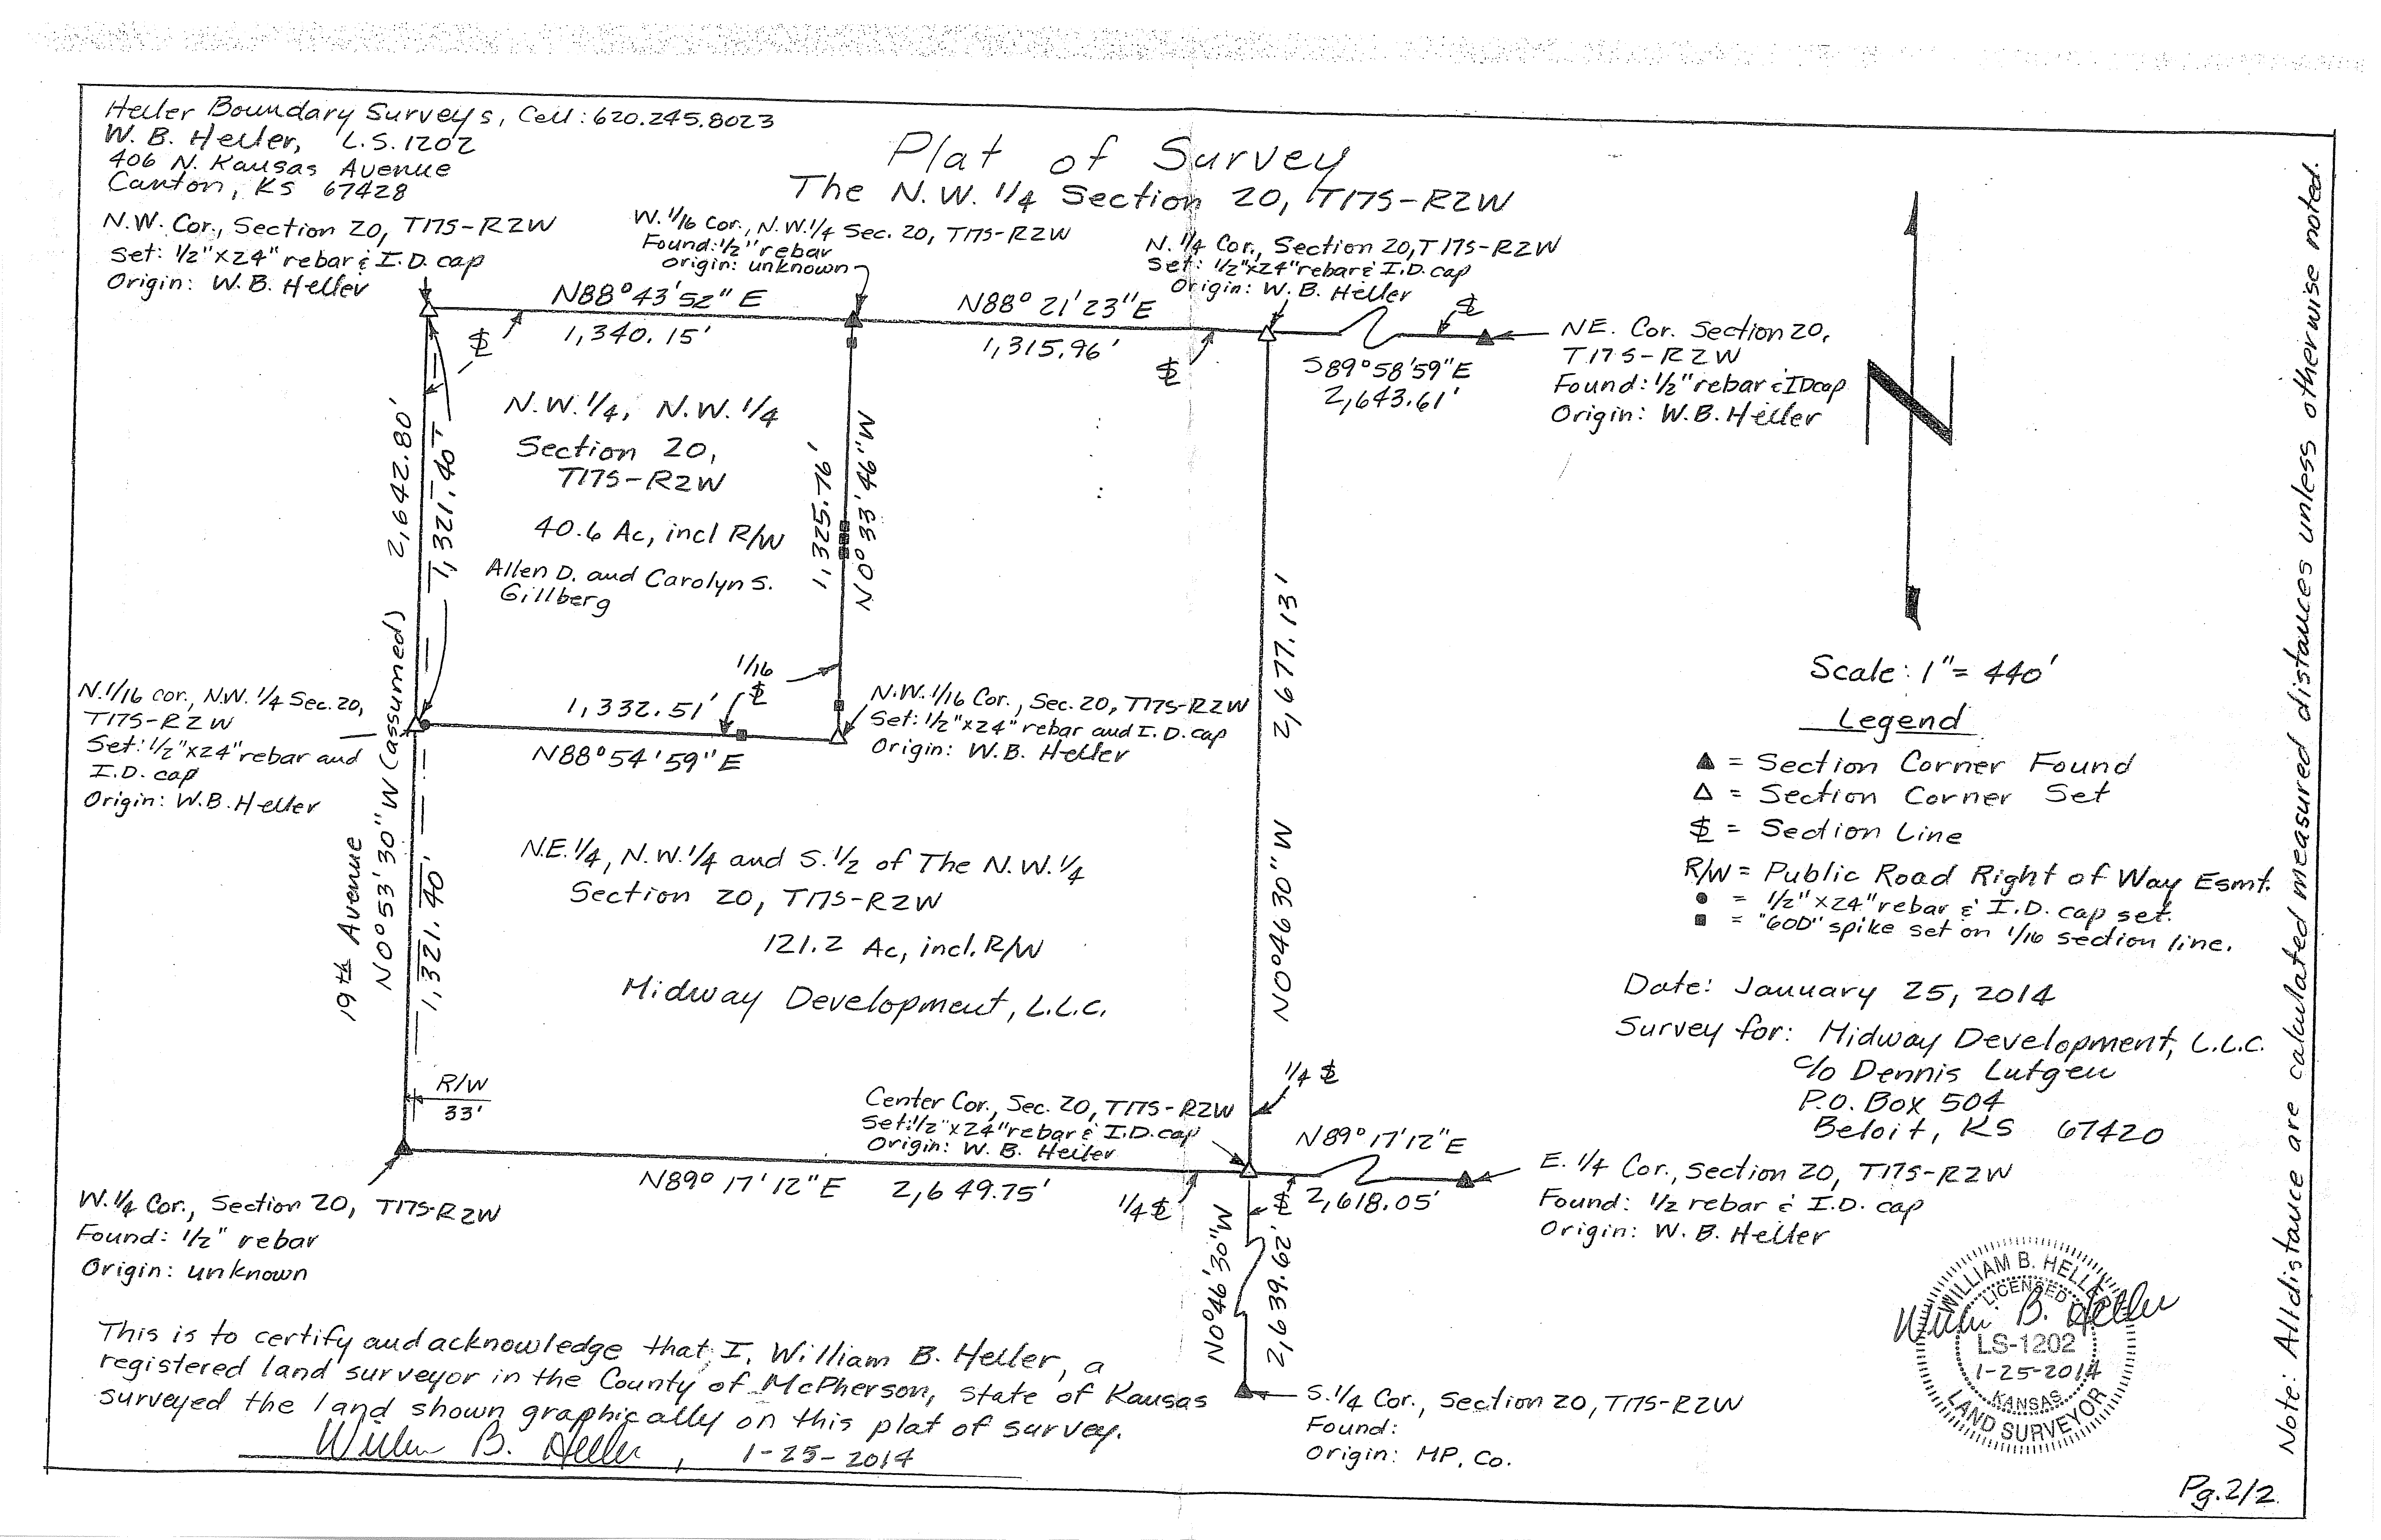 Heller Boundary Surveys, Cell: 620.245.8023
W. B. Heller, L.S. 1202
406 N. Kansas Avenue
Canton, KS 67428
Plat of Survey
The N.W. 1/4 Section 20, T17S-R2W
N.W. Cor., Section 20, T17S-R2W
Set: 1/2"x24" rebar & I.D. cap
Origin: W. B. Heller
W. 1/16 Cor., N.W. 1/4 Sec. 20, T17S-R2W
Found: 1/2" rebar
Origin: unknown
N. 1/4 Cor., Section 20, T17S-R2W
Set: 1/2"x24" rebar & I.D. cap
Origin: W. B. Heller
N88°43'52"E
1,340.15'
N88°21'23"E
1,315.96'
S89°58'59"E
2,643.61'
NE. Cor. Section 20,
T17S-R2W
Found: 1/2" rebar & ID cap
Origin: W. B. Heller
N
2,642.80'
1,321.40'
N.W. 1/4, N.W. 1/4
Section 20,
T17S-R2W
40.6 Ac, incl R/W
Allen D. and Carolyn S.
Gillberg
1,325.76'
N0°33'46"W
2,677.13'
N0°46'30"W
1/16
N. 1/16 cor., N.W. 1/4 Sec. 20,
T17S-R2W
Set: 1/2"x24" rebar and
I.D. cap
Origin: W. B. Heller
1,332.51'
N88°54'59"E
N.W. 1/16 Cor., Sec. 20, T17S-R2W
Set: 1/2"x24" rebar and I.D. cap
Origin: W. B. Heller
19th Avenue
N0°53'30"W (assumed)
1,321.40'
N.E. 1/4, N.W. 1/4 and S. 1/2 of The N.W. 1/4
Section 20, T17S-R2W
121.2 Ac, incl. R/W
Midway Development, L.L.C.
R/W
33'
Center Cor., Sec. 20, T17S-R2W
Set: 1/2"x24" rebar & I.D. cap
Origin: W. B. Heller
1/4 SL
N89°17'12"E
2,618.05'
N89°17'12"E 2,649.75'
1/4 SL
SL
W. 1/4 Cor., Section 20, T17S-R2W
Found: 1/2" rebar
Origin: unknown
E. 1/4 Cor., Section 20, T17S-R2W
Found: 1/2 rebar & I.D. cap
Origin: W. B. Heller
N0°46'30"W
2,639.62'
S. 1/4 Cor., Section 20, T17S-R2W
Found:
Origin: MP. Co.
Scale: 1" = 440'
Legend
▲ = Section Corner Found
△ = Section Corner Set
SL = Section Line
R/W = Public Road Right of Way Esmt.
● = 1/2"x24" rebar & I.D. cap set.
■ = "60D" spike set on 1/16 section line.
Date: January 25, 2014
Survey for: Midway Development, L.L.C.
c/o Dennis Lutgen
P.O. Box 504
Beloit, KS 67420
Note: All distance are calculated measured distances unless otherwise noted.
This is to certify and acknowledge that, I, William B. Heller, a
registered land surveyor in the County of McPherson, State of Kansas
surveyed the land shown graphically on this plat of survey.
William B. Heller, 1-25-2014
WILLIAM B. HELLER
LICENSED
William B. Heller
LS-1202
1-25-2014
KANSAS
LAND SURVEYOR
Pg. 2/2